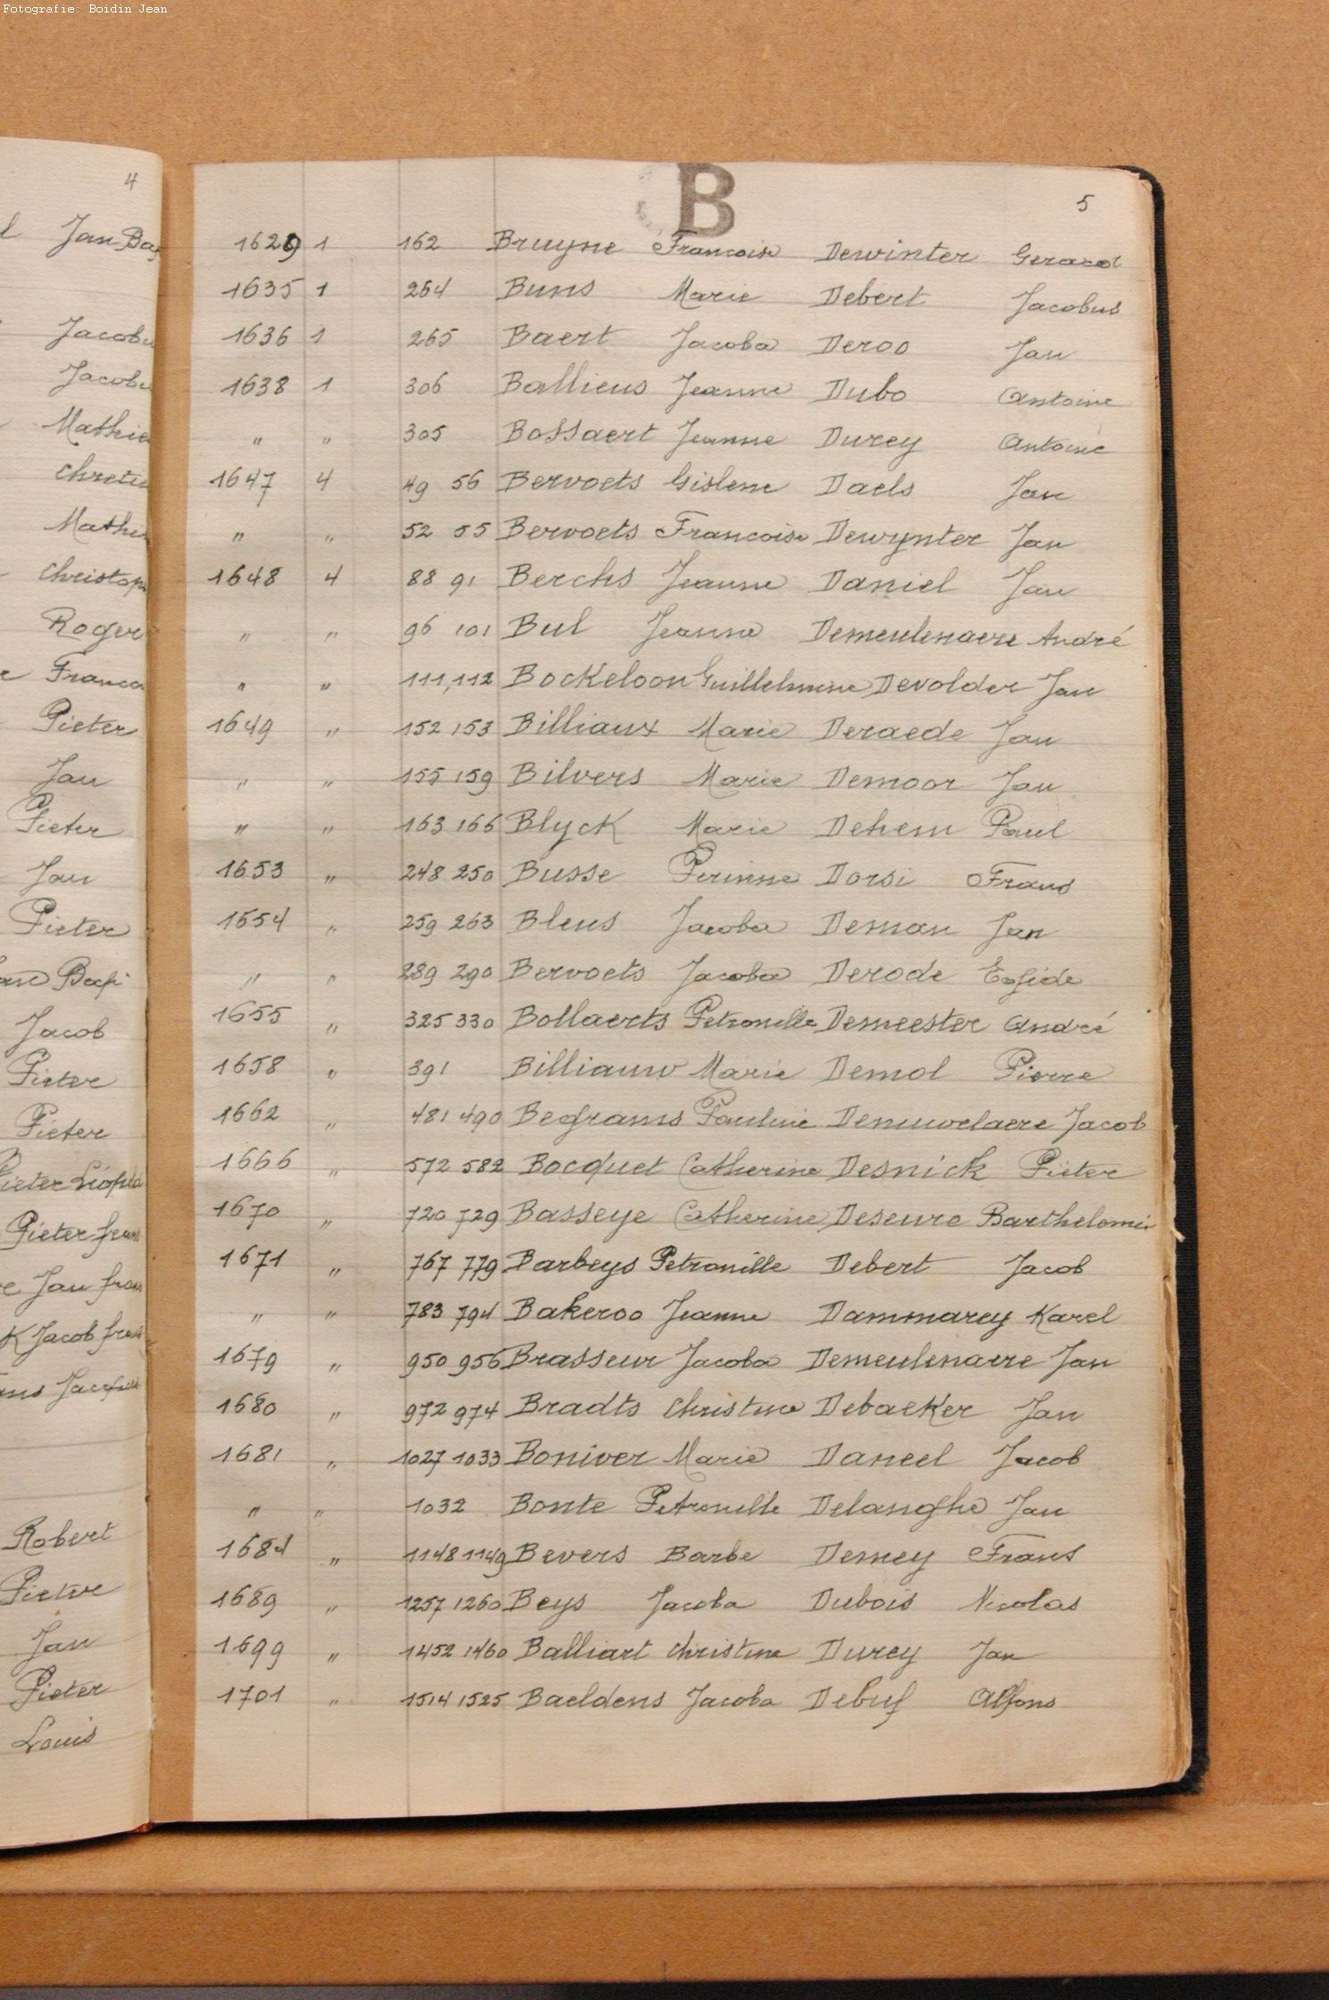 Fotografie: Boidin Jean
4
Jan Bap
Jacobu
Jacobu
Mathie
Chretie
Mathie
Christop
Roger
Franco
Pieter
Jan
Pieter
Jan
Pieter
Bapt
Jacob
Pieter
Pieter
Pieter Léopld
Pieter frans
Jan frans
Jacob frans
Robert
Pieter
Jan
Pieter
Louis
B
5
1629 1 162 Bruyne Francoise Dewinter Gerard
1635 1 264 Buns Marie Debert Jacobus
1636 1 265 Baert Jacoba Deroo Jan
1638 1 306 Ballieus Jeanne Dubo Antoine
" " 305 Bossaert Jeanne Durey Antoine
1647 4 49 56 Bervoets Gislene Daels Jan
" " 52 55 Bervoets Francoise Dewynter Jan
1648 4 88 91 Berchs Jeanne Daniel Jan
" " 96 101 Bul Jeanne Demeulenaere André
" " 111,112 Bockeloon Guillelmine Devolder Jan
1649 " 152 153 Billiaux Marie Deraede Jan
" " 155 159 Bilvers Marie Demoor Jan
" " 163 166 Blyck Marie Dehem Paul
1653 " 248 250 Busse Perinne Dorsi Frans
1654 " 259 263 Bleus Jacoba Deman Jan
" " 289 290 Bervoets Jacoba Derode Egide
1655 " 325 330 Bollaerts Petronille Demeester André
1658 " 391 Billiauw Marie Demol Pierre
1662 " 481 490 Begrams Pauline Denuwelaere Jacob
1666 " 572 582 Bocquet Catherine Desnick Pieter
1670 " 720 729 Basseye Catherine Deseure Barthelomie
1671 " 767 779 Barbeys Petronille Debert Jacob
" " 783 794 Bakeroo Jeanne Dammarey Karel
1679 " 950 956 Brasseur Jacoba Demeulenaere Jan
1680 " 972 974 Bradts Christine Debaeker Jan
1681 " 1027 1033 Boniver Marie Daneel Jacob
" " 1032 Bonte Petronille Delanghe Jan
1684 " 1148 1149 Bevers Barbe Demey Frans
1689 " 1257 1260 Beys Jacoba Dubois Nicolas
1699 " 1452 1460 Balliart Christine Durey Jan
1701 " 1514 1525 Baeldens Jacoba Debuf Alfons